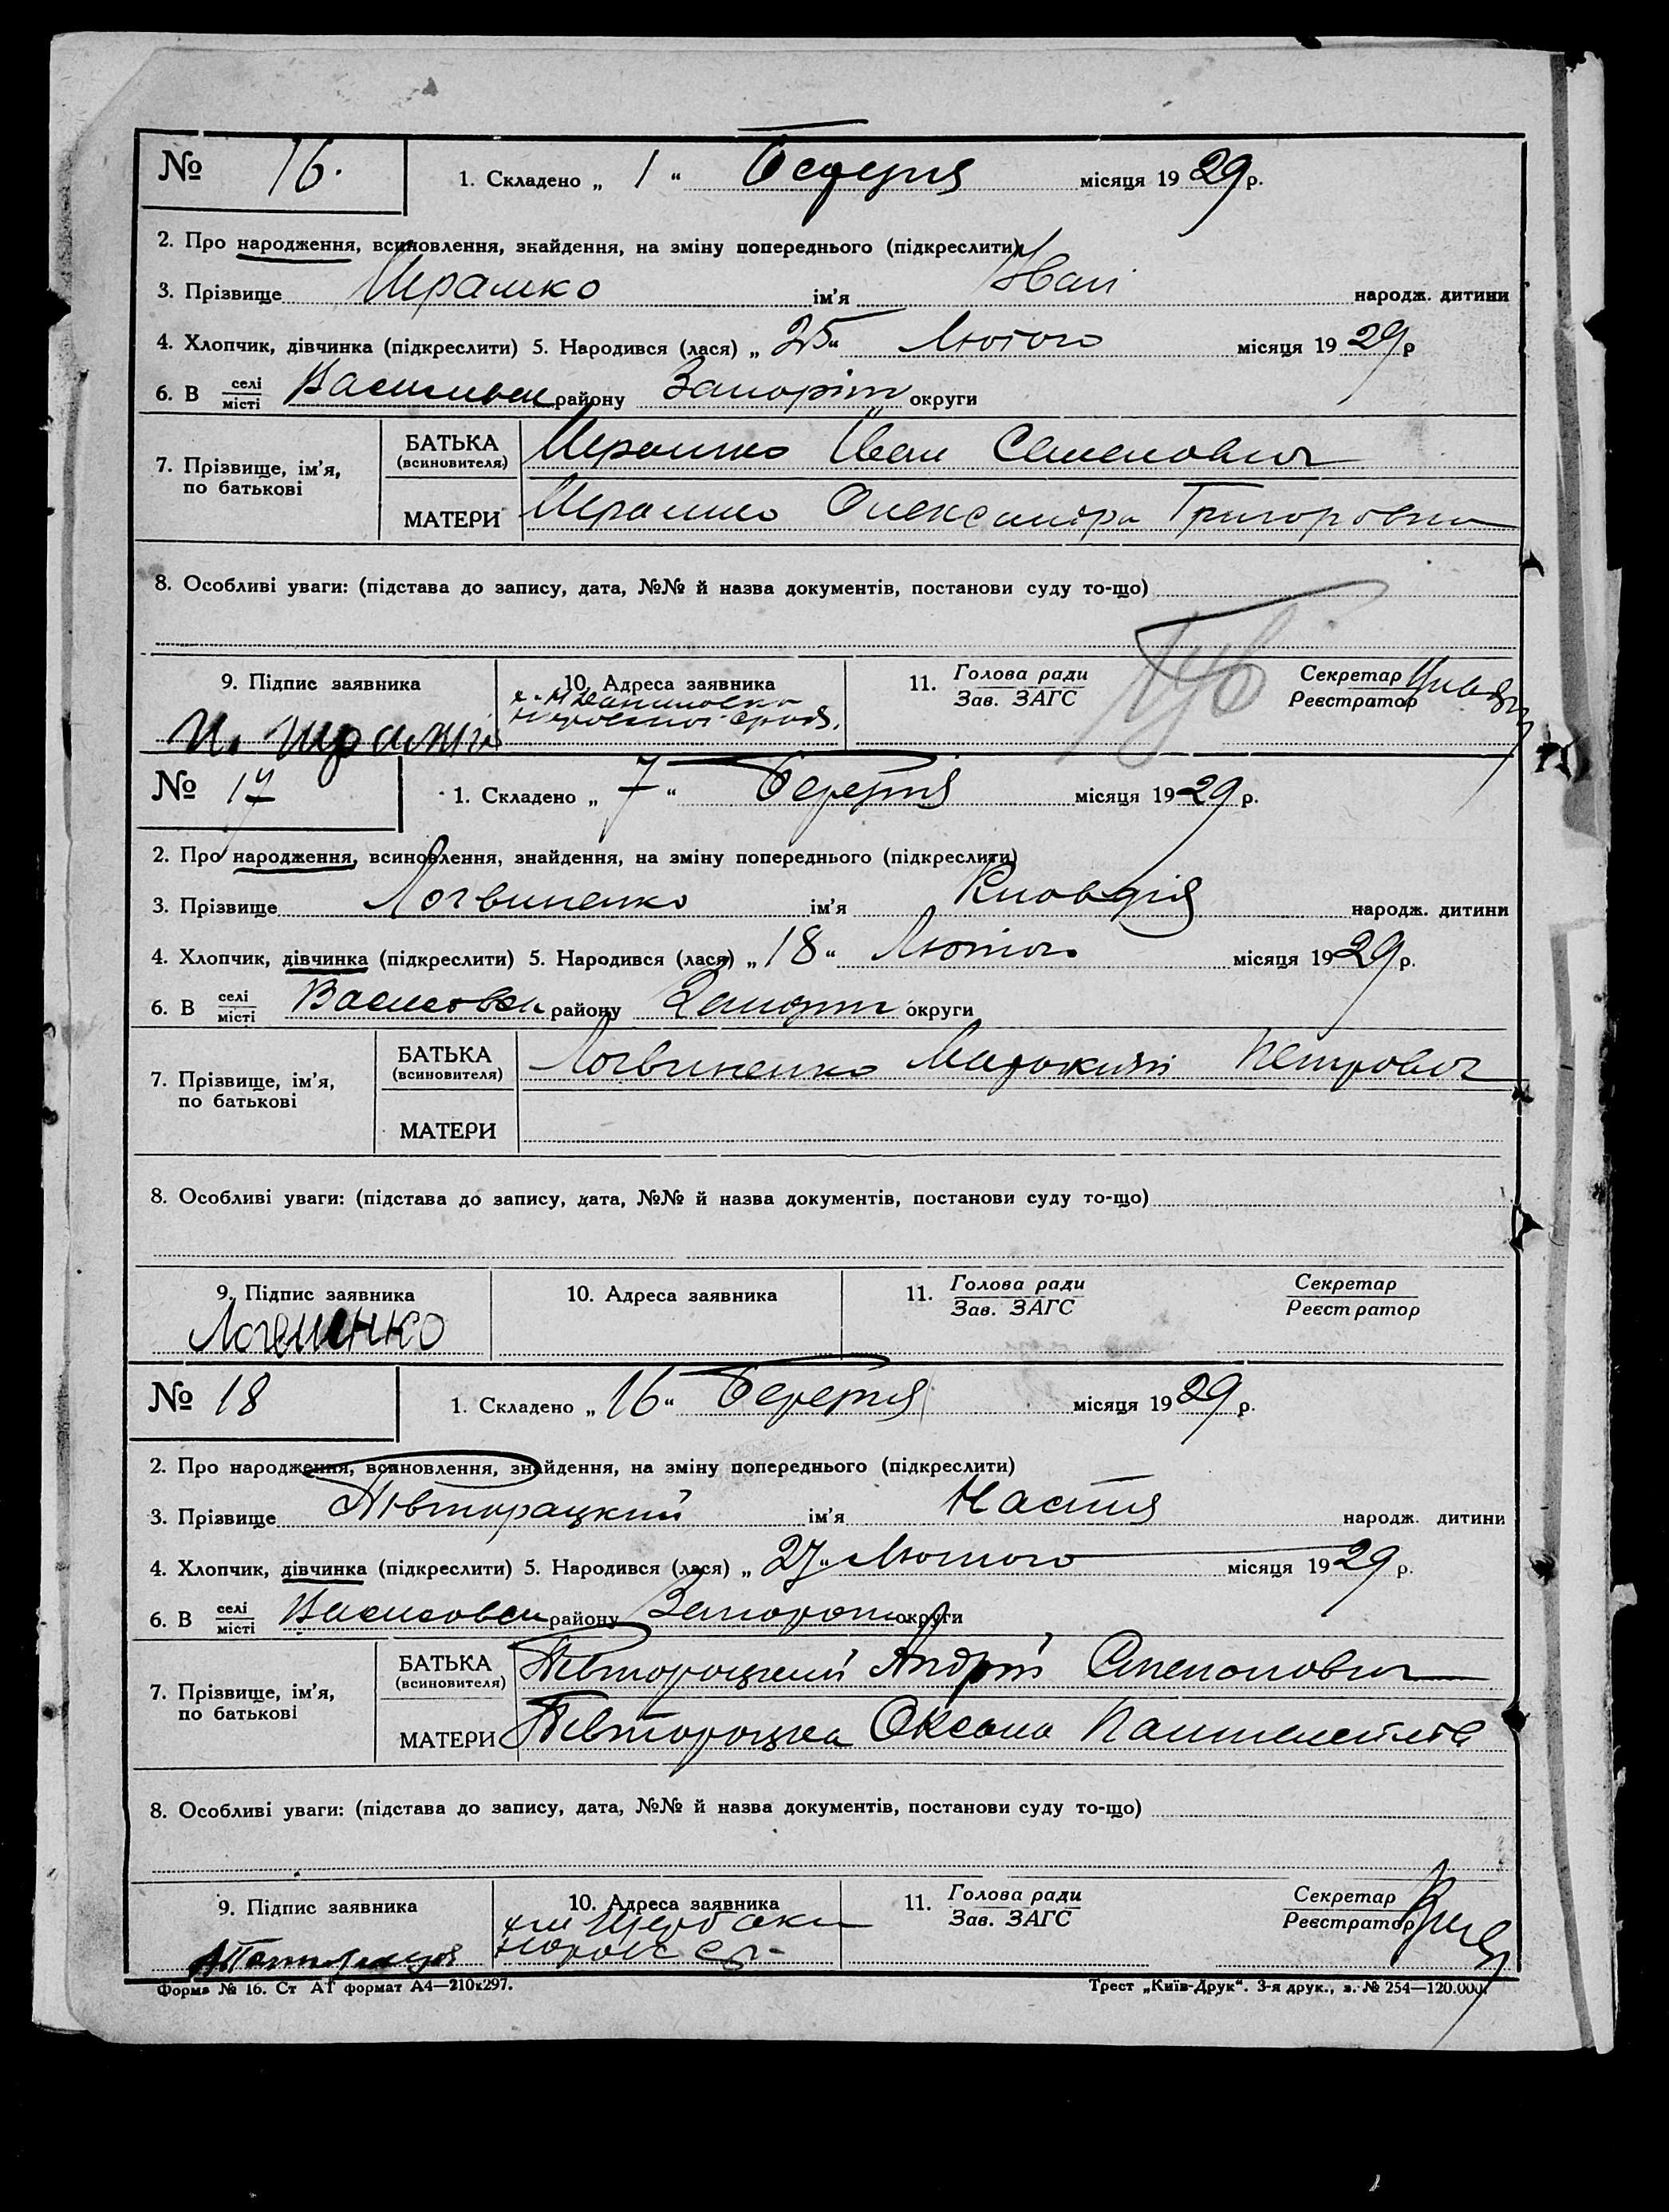 № 16. 1. Складено „ 1 “ Березня місяця 1929 р.
2. Про народження, всиновлення, знайдення, на зміну попереднього (підкреслити)
3. Прізвище Шрамко ім'я Іван народж. дитини
4. Хлопчик, дівчинка (підкреслити) 5. Народився (лася) „ 25 “ Лютого місяця 1929 р
6. В селі місті району Запоріж округи
7. Прізвище, ім'я, по батькові БАТЬКА (всиновителя) Шрамко Іван Семенович
МАТЕРИ Шрамко Олександра Григоровна
8. Особливі уваги: (підстава до запису, дата, №№ й назва документів, постанови суду то-що)
9. Підпис заявника 10. Адреса заявника 11. Голова ради Зав. ЗАГС Секретар Реєстратор
№ 17 1. Складено „ 7 “ Березня місяця 1929 р.
2. Про народження, всиновлення, знайдення, на зміну попереднього (підкреслити)
3. Прізвище Логвиненко ім'я Клавдія народж. дитини
4. Хлопчик, дівчинка (підкреслити) 5. Народився (лася) „ 18 “ Лютого місяця 1929 р.
6. В селі місті району округи
7. Прізвище, ім'я, по батькові БАТЬКА (всиновителя) Логвиненко Петрович
МАТЕРИ
8. Особливі уваги: (підстава до запису, дата, №№ й назва документів, постанови суду то-що)
9. Підпис заявника 10. Адреса заявника 11. Голова ради Зав. ЗАГС Секретар Реєстратор
№ 18 1. Складено „ 16 “ Березня місяця 1929 р.
2. Про народження, всиновлення, знайдення, на зміну попереднього (підкреслити)
3. Прізвище Півторацкий ім'я Настя народж. дитини
4. Хлопчик, дівчинка (підкреслити) 5. Народився (лася) „ 27 “ Лютого місяця 1929 р.
6. В селі місті району округи
7. Прізвище, ім'я, по батькові БАТЬКА (всиновителя) Півторацкий Андрій
МАТЕРИ Півторацка Оксана
8. Особливі уваги: (підстава до запису, дата, №№ й назва документів, постанови суду то-що)
9. Підпис заявника 10. Адреса заявника 11. Голова ради Зав. ЗАГС Секретар Реєстратор
Форма № 16. Ст АГ формат А4—210х297. Трест „Київ-Друк“. 3-я друк., з. № 254—120.000.